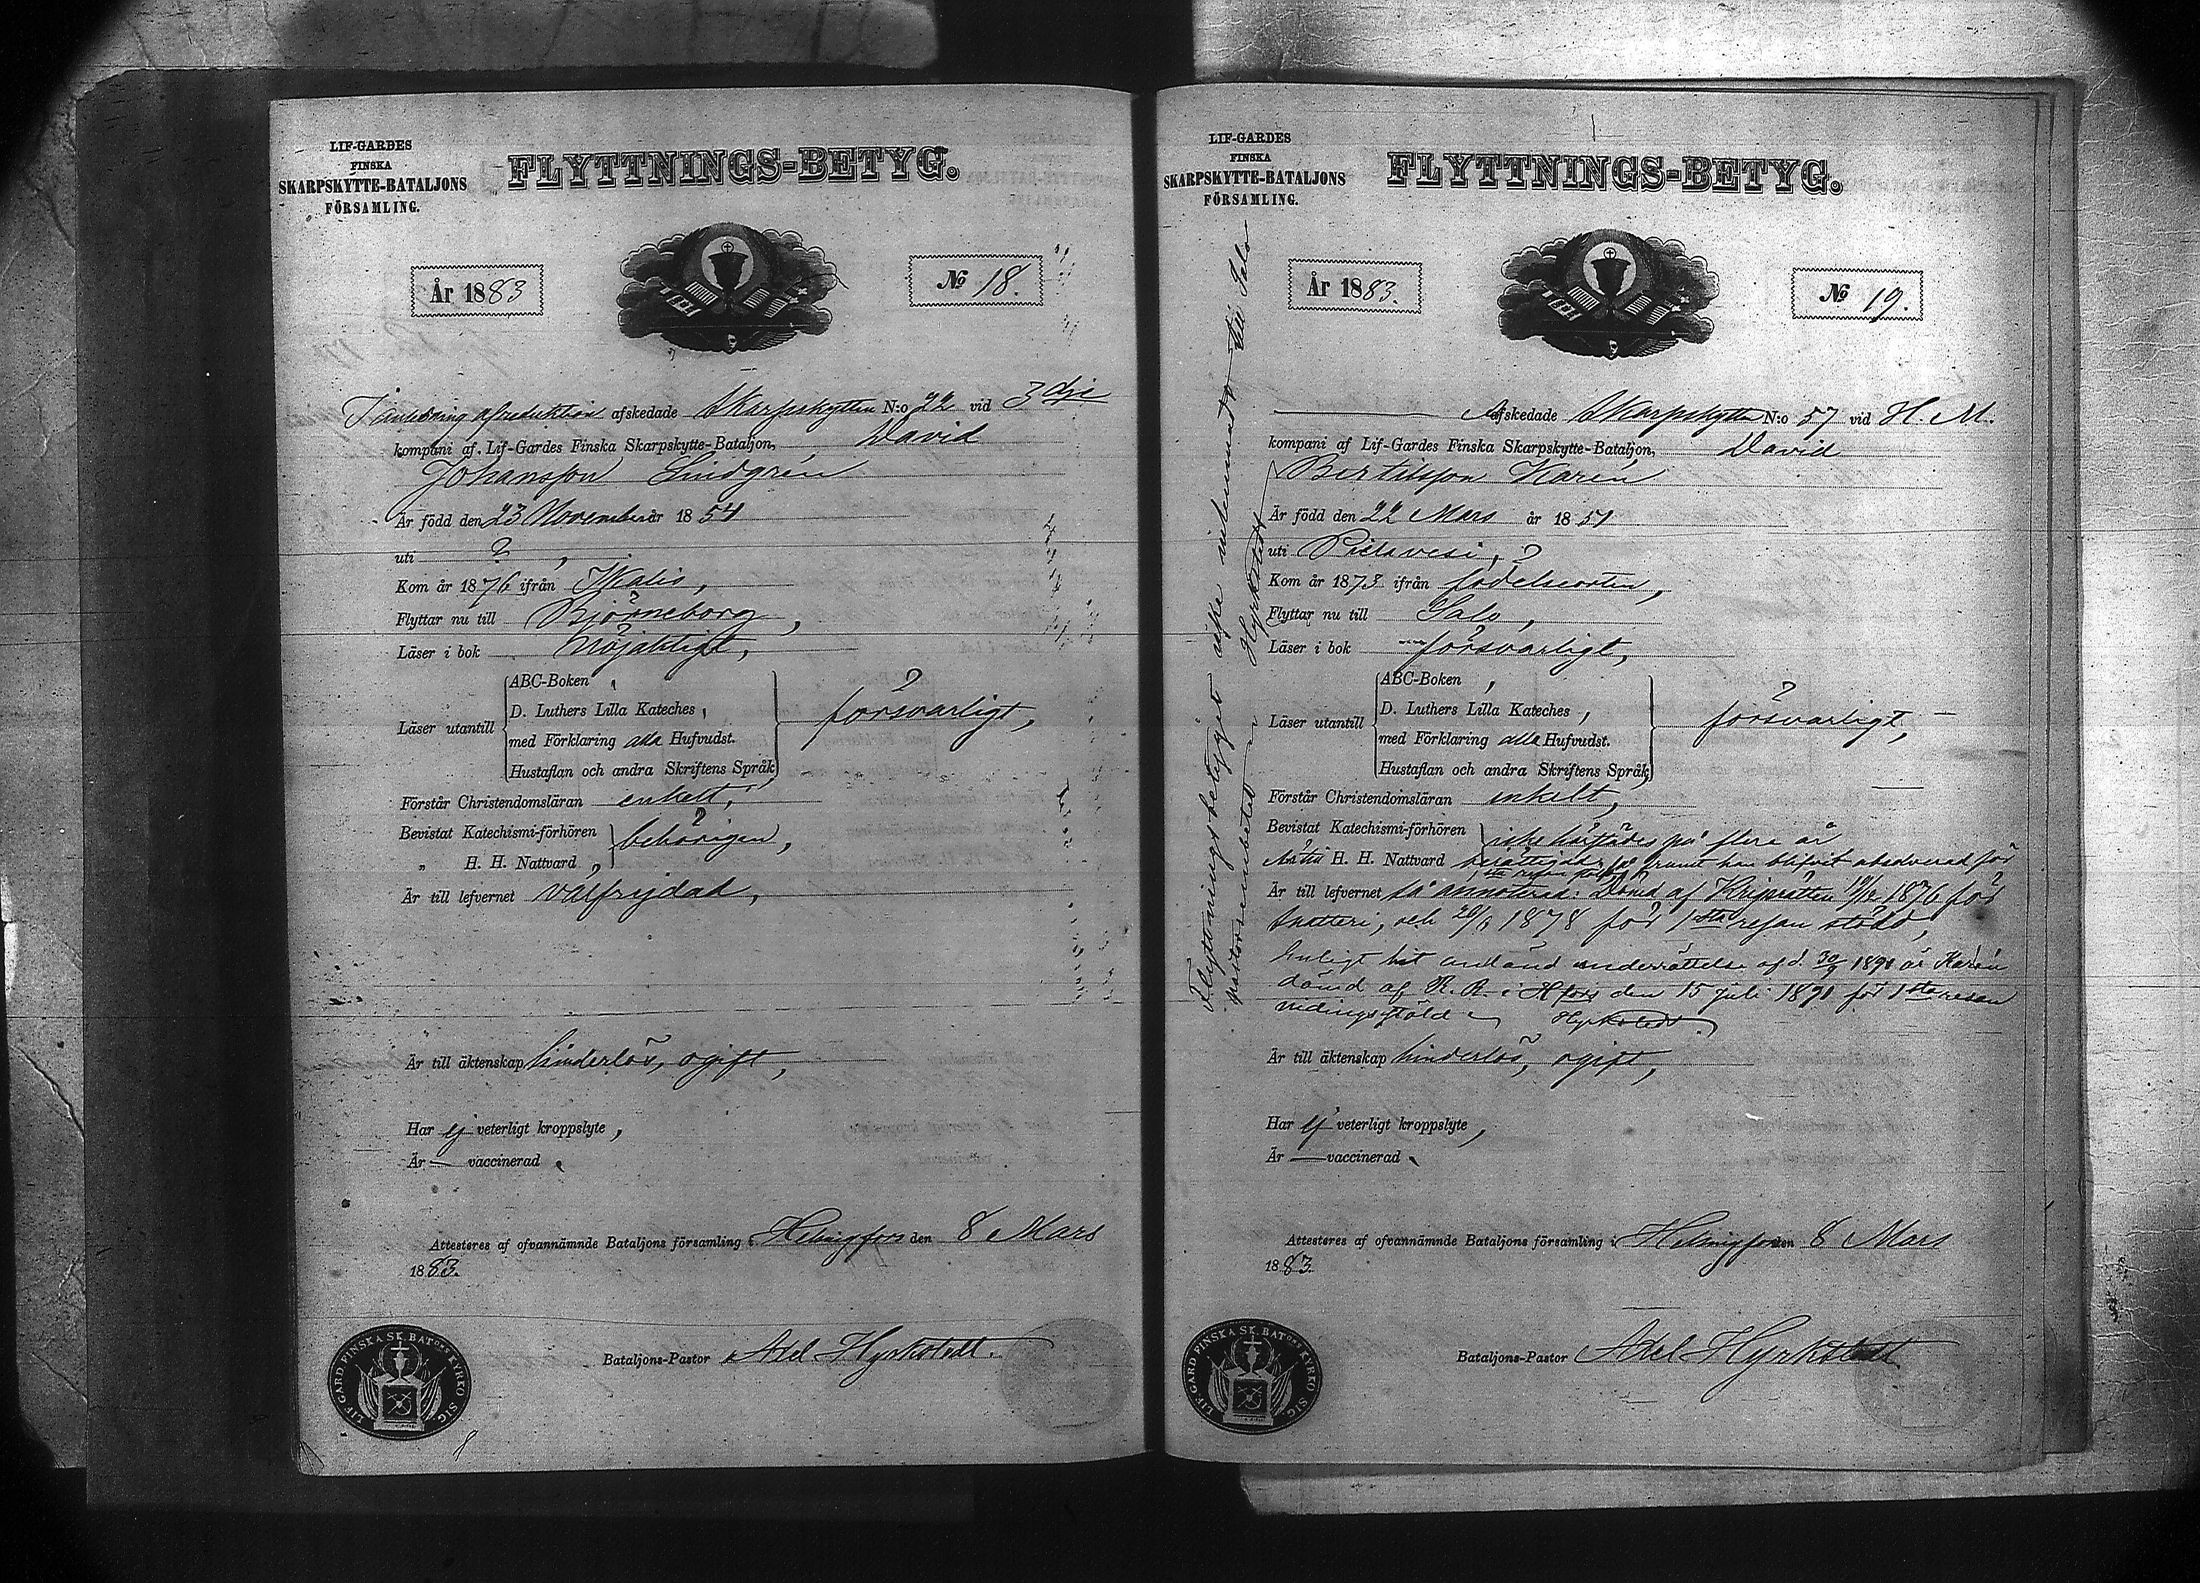 LIF-GARDES
FINSKA
SKARPSKYTTE-BATALJONS
FÖRSAMLING.
FLYTTNINGS-BETYG.
År 1883
No 18.
afskedade Skarpskytten N:o 22 vid 3dje
kompani af Lif-Gardes Finska Skarpskytte-Bataljon, David
Johansson Lindgrén
Är född den 23 November år 1854
uti ?,
Kom år 1876 ifrån Ikalis,
Flyttar nu till Björneborg,
Läser i bok nöjaktigt,
Läser utantill
ABC-Boken,
D. Luthers Lilla Kateches,
med Förklaring alla Hufvudst.
Hustaflan och andra Skriftens Språk
försvarligt,
Förstår Christendomsläran enkelt,
Bevistat Katechismi-förhören
„ H. H. Nattvard,
behörigen,
Är till lefvernet välfrejdad,
Är till äktenskap hinderlös, ogift,
Har ej veterligt kroppslyte,
Är — vaccinerad.
Attesteres af ofvannämnde Bataljons församling i Helsingfors den 8 Mars
1883.
Bataljons-Pastor Axel Hyrkstedt.
LIF-GARD FINSKA SK. BATons KYRKO SIG.
LIF-GARDES
FINSKA
SKARPSKYTTE-BATALJONS
FÖRSAMLING.
FLYTTNINGS-BETYG.
År 1883.
No 19.
Afskedade Skarpskytten N:o 57 vid H. M.
kompani af Lif-Gardes Finska Skarpskytte-Bataljon, David
Bertilsson Karén
Är född den 22 Mars år 1851
uti Pielavesi,
Kom år 1873 ifrån födelseorten,
Flyttar nu till Salo,
Läser i bok försvarligt,
Läser utantill
ABC-Boken,
D. Luthers Lilla Kateches,
med Förklaring alla Hufvudst.
Hustaflan och andra Skriftens Språk
försvarligt,
Förstår Christendomsläran enkelt,
Bevistat Katechismi-förhören icke härstädes på flere år
H. H. Nattvard berättigad, har blifvit absolverad för
1sta resan stöld,
Är till lefvernet så annoterad: Dömd af Krigsrätten 1876 för
snatteri, och 20/6 1878 för 1sta resan stöld,
Enligt hit anländ underrättelse af d. 30/9 1891 är Karén
dömd af R. R. i H:fors den 15 Juli 1891 för 1sta resan
Hyrkstedt
Är till äktenskap hinderlös, ogift,
Har ej veterligt kroppslyte,
Är — vaccinerad.
Attesteres af ofvannämnde Bataljons församling i Helsingfors den 8 Mars
1883.
Bataljons-Pastor Axel Hyrkstedt
LIF-GARD FINSKA SK. BATons KYRKO SIG.
Flyttningsbetyget icke inlemnadt till Salo
pastorsembetet Hyrkstedt